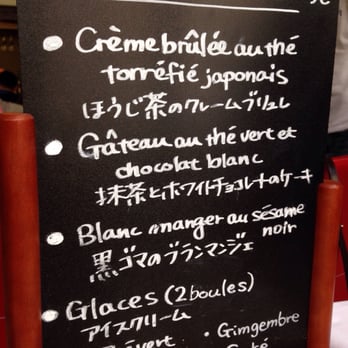 • Crème brûlée au thé
torréfié japonais
ほうじ茶のクレームブリュレ
• Gâteau au thé vert et
chocolat blanc
抹茶とホワイトチョコレートのケーキ
• Blanc manger au sésame
noir
黒ゴマのブランマンジェ
• Glaces (2 boules)
アイスクリーム
• Gimgembre